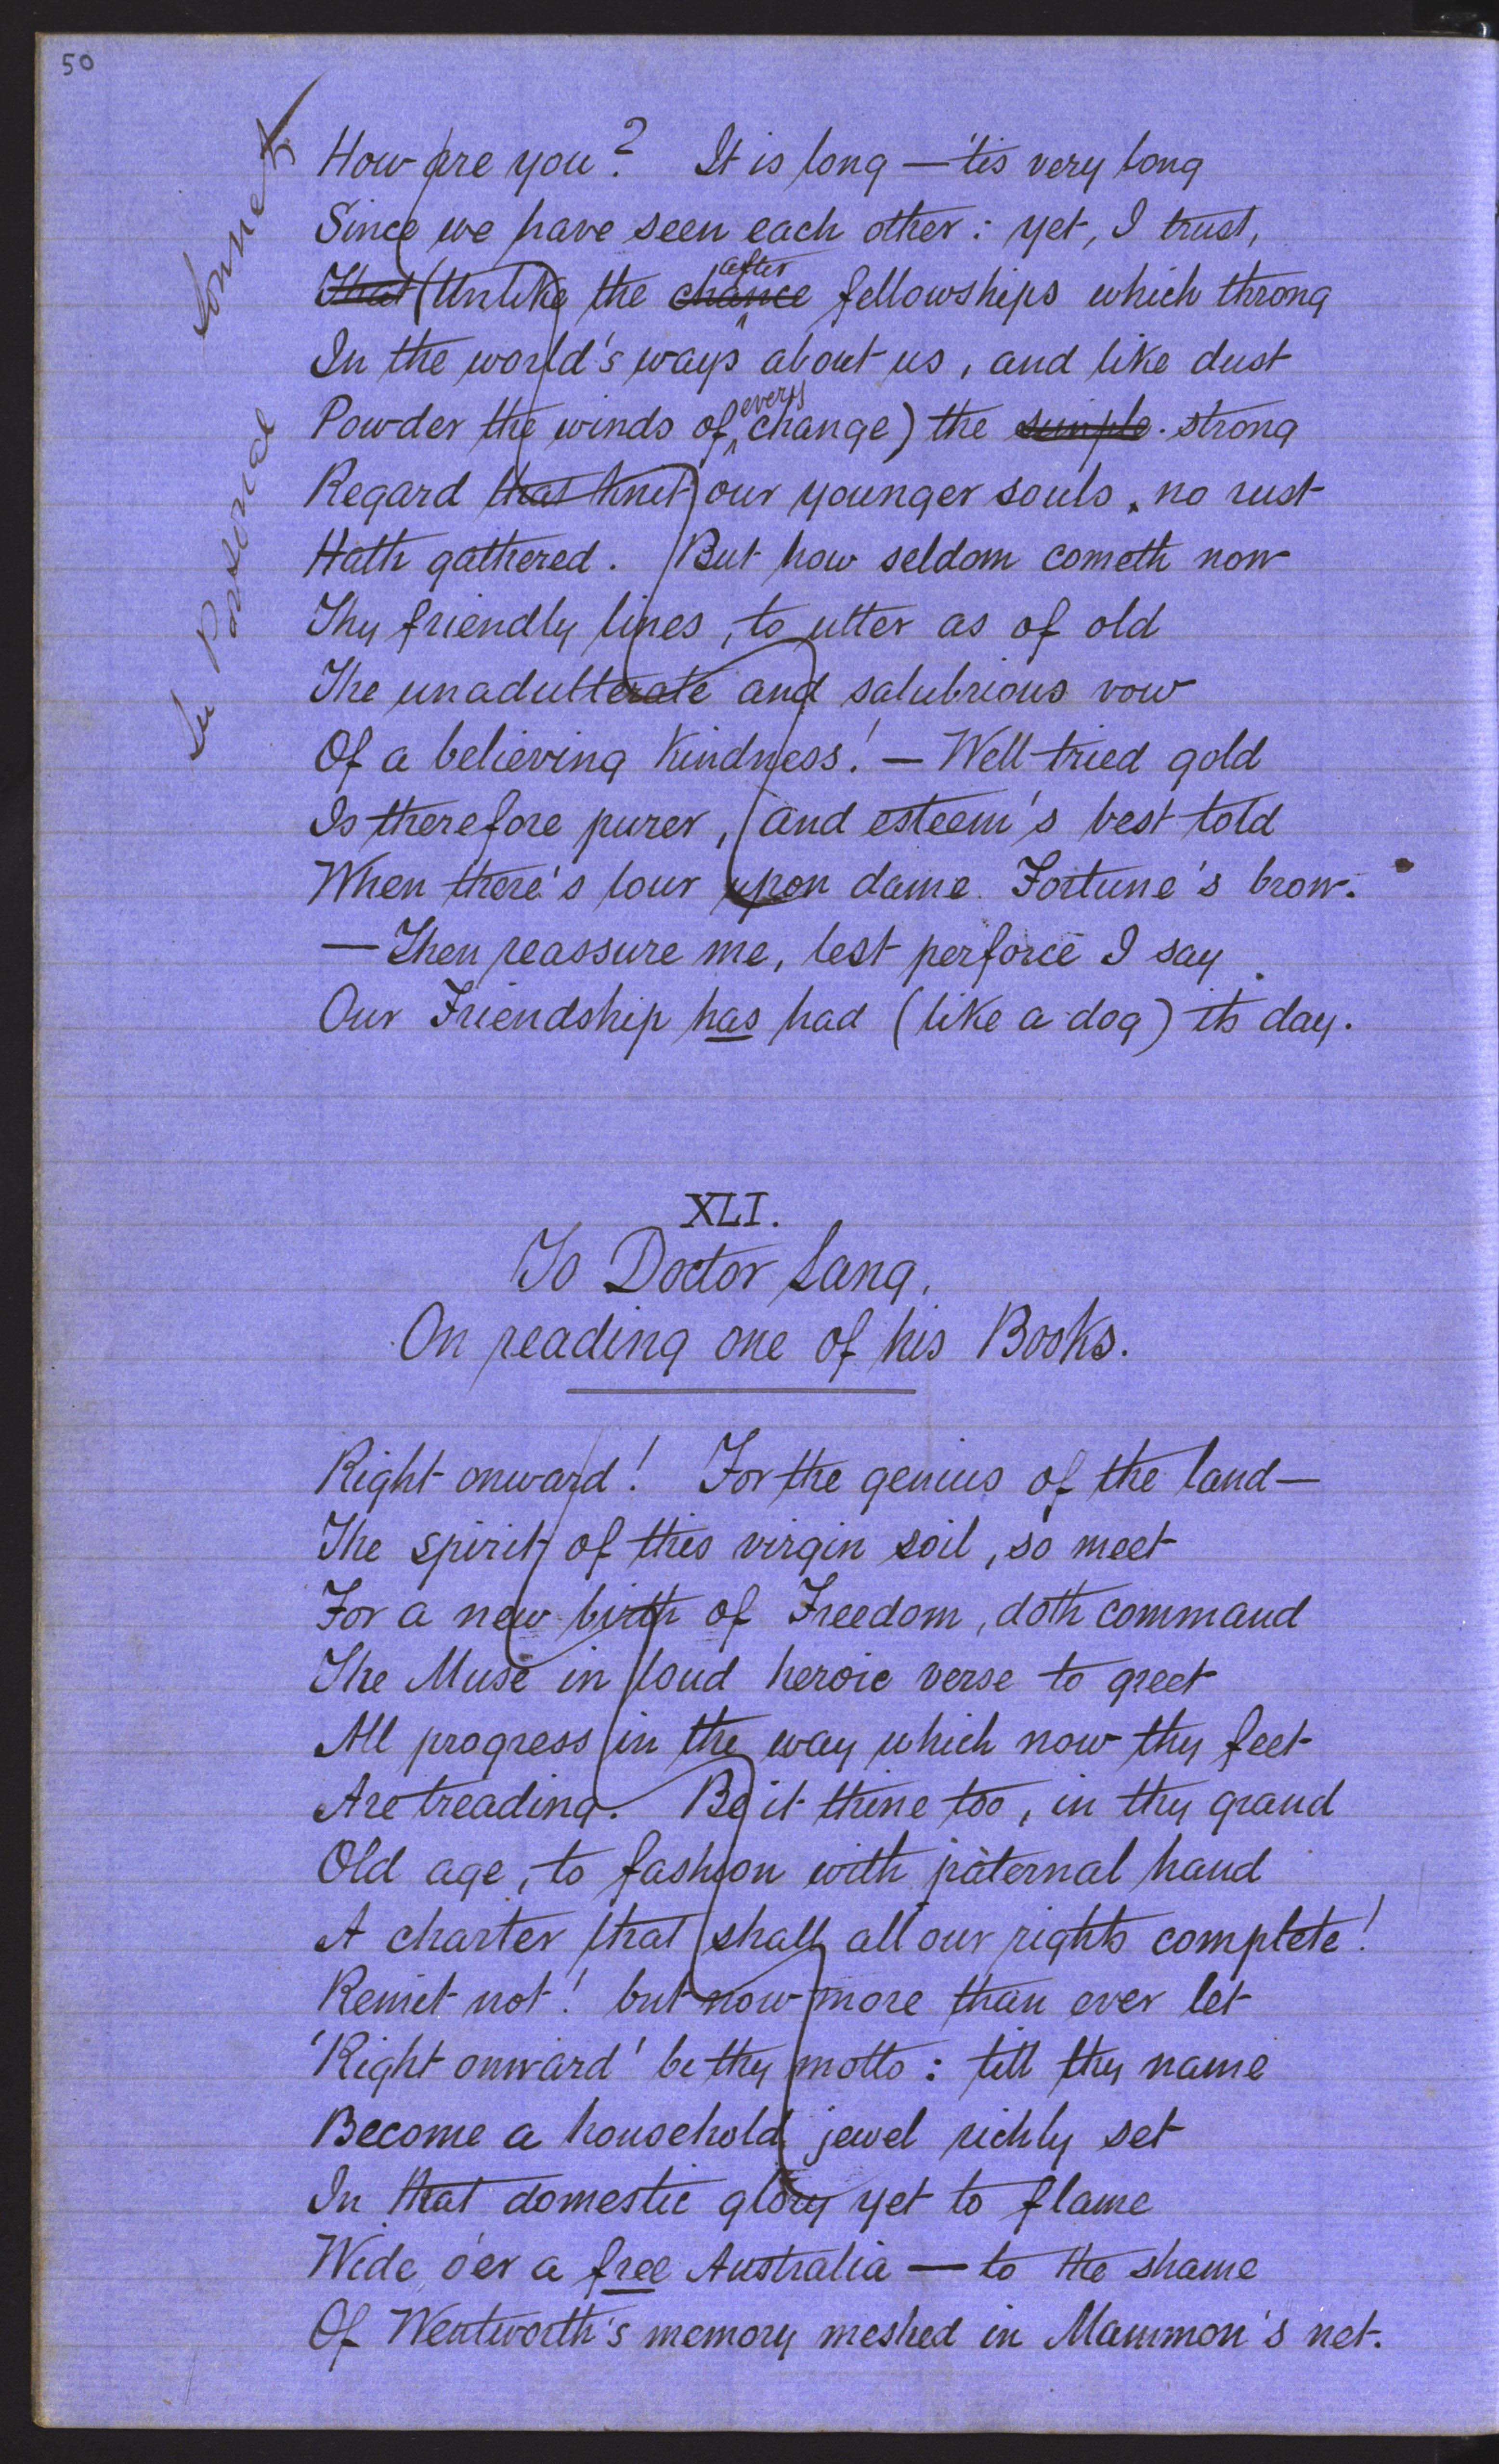 50
In Personal Sonnets
How are you? It is long — 'tis very long
Since we have seen each other: yet, I trust,
That (Unlike the chance after fellowships which throng
In the world's ways about us, and like dust
Powder the winds of every change) the simple strong
Regard that knit our younger souls, no rust
Hath gathered. But how seldom cometh now
Thy friendly lines, to utter as of old
The unadulterate and salubrious vow
Of a believing kindness! — Well-tried gold
Is therefore purer, and esteem's best told
When there's lour upon dame Fortune's brow.
— Then reassure me, lest perforce I say
Our Friendship has had (like a dog) its day.
XLI.
To Doctor Lang,
On reading one of his Books.
Right onward! For the genius of the land—
The spirit of this virgin soil, so meet
For a new birth of Freedom, doth command
The Muse in loud heroic verse to greet
All progress in the way which now thy feet
Are treading. Be it thine too, in thy grand
Old age, to fashion with paternal hand
A charter that shall all our rights complete!
Remit not! but now more than ever let
'Right onward' be thy motto: till thy name
Become a household jewel richly set
In that domestic glory yet to flame
Wide o'er a free Australia — to the shame
Of Wentworth's memory meshed in Mammon's net.